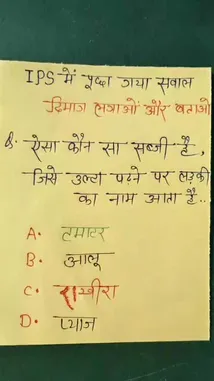 IPS में पूछा गया सवाल
दिमाग लगाओं और बताओ
Q. ऐसा कौन सा सब्जी है,
जिसे उल्टा पढ़ने पर लड़की
का नाम आता है..
A. टमाटर
B. आलू
C. खीरा
D. प्याज